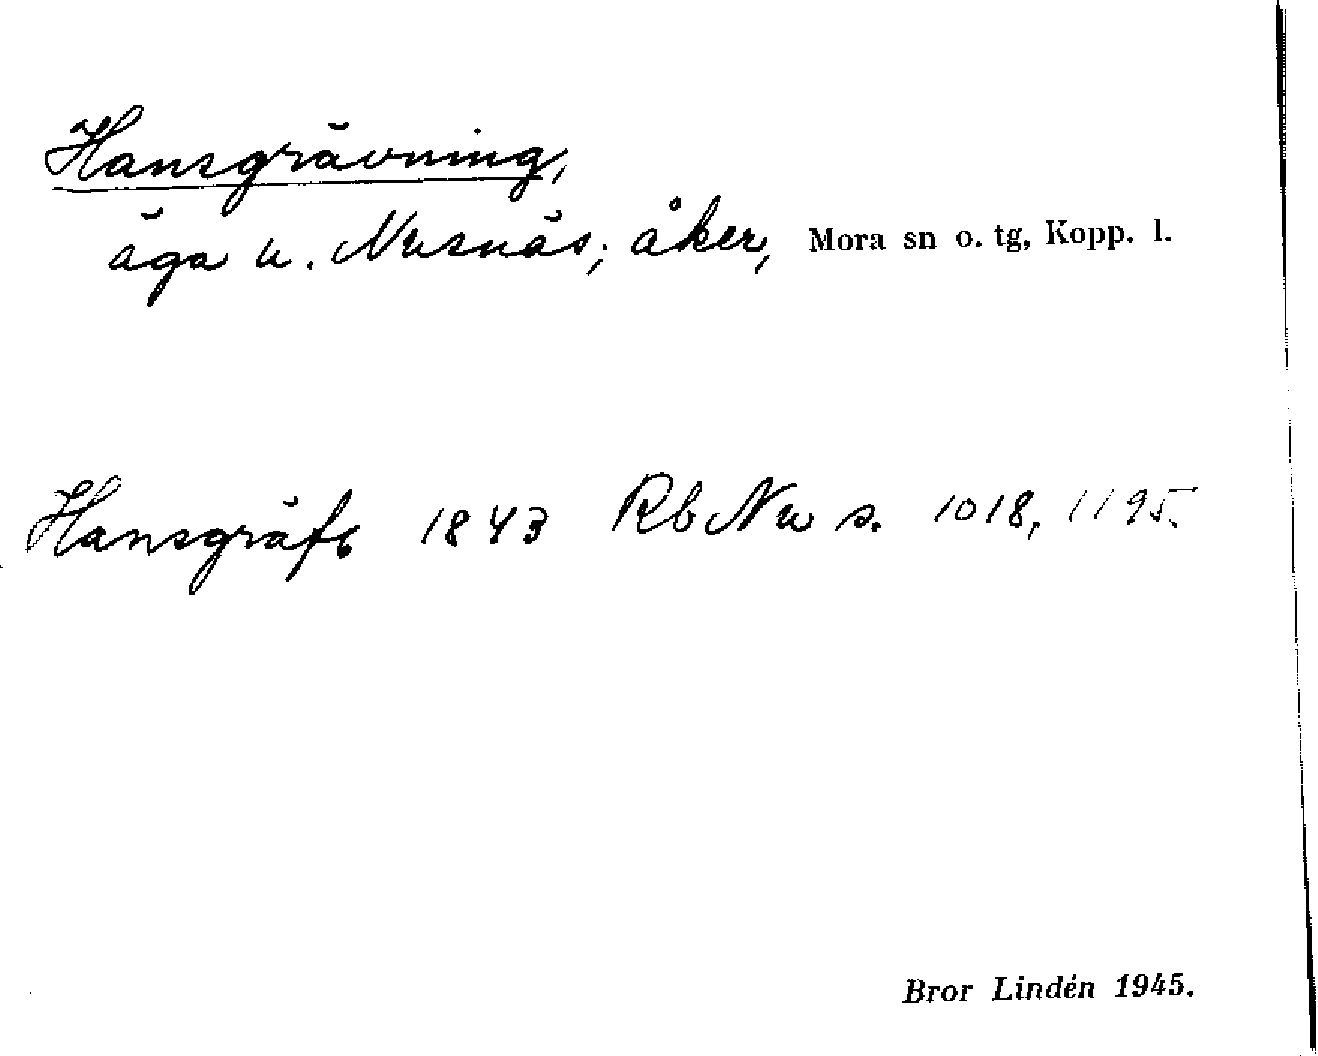 Hansgrävning,
äga u. Nusnäs; åker, Mora sn o. tg, Kopp. l.
Hansgräfb 1843 Rb Nu s. 1018, 1195.
Bror Lindén 1945.